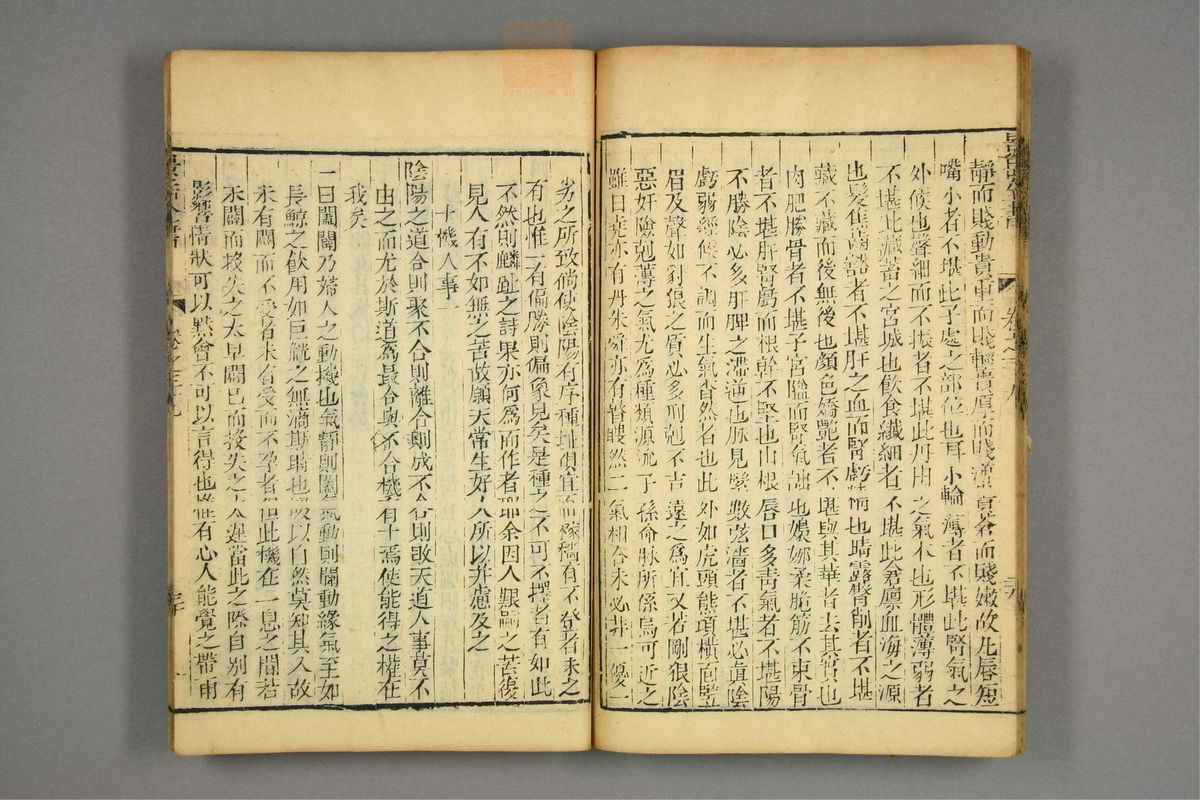 靜而賤動貴重而賤輕貴厚而賤薄貴蒼而賤嫩故凡唇短
嘴小者不堪此子處之部位也耳小輪薄者不堪此腎氣之
外候也聲細而不振者不堪此丹田之氣本也形體薄弱者
不堪此藏蓄之宮城也飲食纖細者不堪此倉廩血海之源
也髮焦齒豁者不堪肝之血而腎虧精也睛露臀削者不堪
藏不藏而後無後也顏色嬌艷者不堪與其華者去其實也
肉肥勝骨者不堪子宮隘而腎氣詘也嬝娜柔脆筋不束骨
者不堪肝腎虧而根幹不堅也山根唇口多青氣者不堪陽
不勝陰必多肝脾之滯逆也脉見緊數弦濇者不堪必真陰
虧弱經候不調而生氣杳然者也此外如虎頭熊項橫面豎
眉及聲如豺狼之質必多刑剋不吉遠之為宜又若剛狠陰
惡奸險剋薄之氣尤為種類源流子孫命脉所係烏可近之
雖曰堯亦有丹朱舜亦有瞽瞍然二氣相合未必非一優一
劣之所致倘使陰陽有序種址俱宜而稼穡有不登者未之
有也惟一有偏勝則偏象見矣是種之不可不擇者有如此
不然則麟趾之詩果亦何為而作者耶余因人艱嗣之苦復
見人有不如無之苦故願天常生好人所以并慮及之
十機人事二
陰陽之道合則聚不合則離合則成不合則敗天道人事莫不
由之而尤於斯道為最合與不合機有十焉使能得之權在
我矣
一曰闔闢乃婦人之動機也氣靜則闔氣動則闢動緣氣至如
長鯨之飲川如巨觥之無滴斯時也吸以自然莫知其入故
未有闢而不受者未有受而不孕者但此機在一息之間若
未闢而投失之太早闢已而投失之太遲當此之際自別有
影響情狀可以默會不可以言得也惟有心人能覺之帶雨